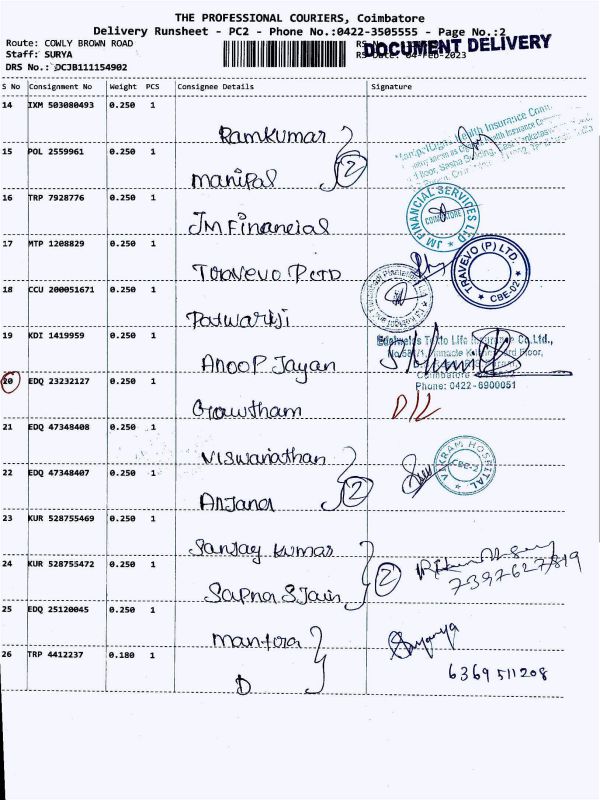 THE PROFESSIONAL COURIERS, Coimbatore
Delivery Runsheet - PC2 - Phone No.:0422-3505555 - Page No.:2
Route: COWLY BROWN ROAD
DOCUMENT DELIVERY
Staff: SURYA
04-Feb-2023
DRS No.: DCJB111154902
S No Consignment No Weight PCS Consignee Details Signature
14 IXM 503080493 0.250 1
Ramkumar
Health Insurance
15 POL 2559961 0.250 1
Manipal 2
16 TRP 7928776 0.250 1
JM Financial
JM FINANCIAL SERVICES LTD COIMBATORE
17 MTP 1208829 0.250 1
TRAVEVO (P) LTD. CBE-02
18 CCU 200051671 0.250 1
Patwariji
19 KDI 1419959 0.250 1
Edelweiss Tokio Life Insurance Co.Ltd.,
Anoop Jayan
Phone: 0422-6900051
20 EDQ 23232127 0.250 1
Gowtham D/L
21 EDQ 47348408 0.250 1
Viswanathan
VIKRAM HOSPITAL CBE-2
22 EDQ 47348407 0.250 1
Anjana 2
23 KUR 528755469 0.250 1
Sanjay kumar
24 KUR 528755472 0.250 1
2
7397627819
Sapna S Jain
25 EDQ 25120045 0.250 1
Mantra
26 TRP 4412237 0.180 1
6369511208
D